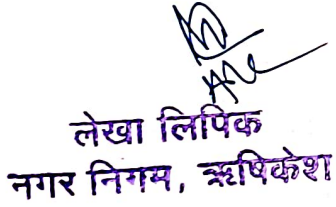 लेखा लिपिक
नगर निगम, ऋषिकेश